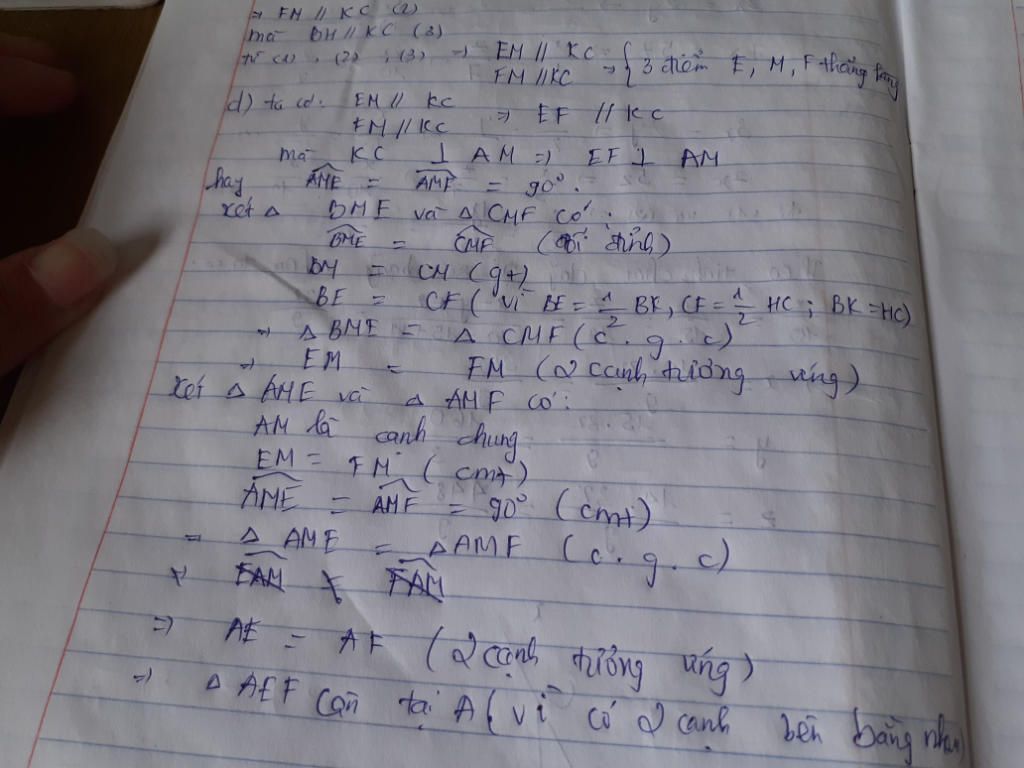 => FM // KC (2)
mà BH // KC (3)
từ (1), (2), (3) => EM // KC
FM // KC => { 3 điểm E, M, F thẳng hàng
d) ta có: EM // KC
FM // KC => EF // KC
mà KC ⊥ AM => EF ⊥ AM
hay AME = AMF = 90°.
xét △ BME và △ CMF có:
BME = CMF (đối đỉnh)
BM = CM (gt)
BE = CF (vì BE = 1/2 BK, CF = 1/2 HC; BK = HC)
=> △ BME = △ CMF (c.g.c)
=> EM = FM (2 cạnh tương ứng)
xét △ AME và △ AMF có:
AM là cạnh chung
EM = FM (cmt)
AME = AMF = 90° (cmt)
= △ AME = △ AMF (c.g.c)
EAM FAM
=> AE = AF (2 cạnh tưởng ứng)
=> △ AEF cân tại A (vì có 2 cạnh bên bằng nhau)